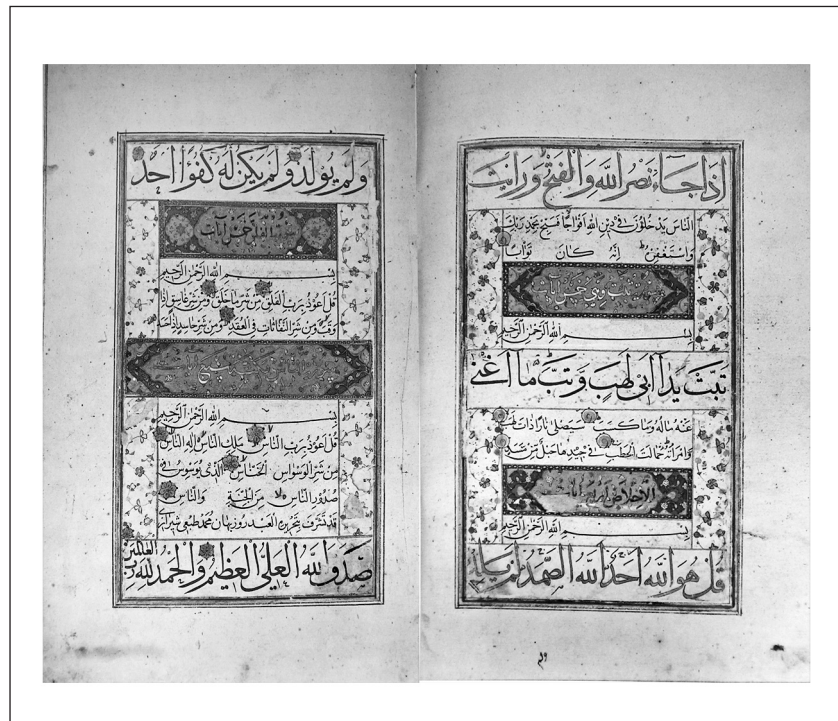 اذَا جَاءَ نَصْرُ اللهِ وَالْفَتْحُ وَرَاَيْتَ
النَّاسَ يَدْخُلُونَ فِى دِينِ اللهِ اَفْوَاجًا فَسَبِّحْ بِحَمْدِ رَبِّكَ
وَاسْتَغْفِرْهُ اِنَّهُ كَانَ تَوَّابًا
تبت وهي خمس آيات
بِسْمِ اللهِ الرَّحْمٰنِ الرَّحِيمِ
تَبَّتْ يَدَا اَبِى لَهَبٍ وَتَبَّ مَا اَغْنٰى
عَنْهُ مَالُهُ وَمَا كَسَبَ سَيَصْلٰى نَارًا ذَاتَ لَهَبٍ
وَامْرَاَتُهُ حَمَّالَةَ الْحَطَبِ فِى جِيدِهَا حَبْلٌ مِنْ مَسَدٍ
الاخلاص اربع آيات
بِسْمِ اللهِ الرَّحْمٰنِ الرَّحِيمِ
قُلْ هُوَ اللهُ اَحَدٌ اَللهُ الصَّمَدُ لَمْ يَلِدْ
وَلَمْ يُولَدْ وَلَمْ يَكُنْ لَهُ كُفُوًا اَحَدٌ
سورة الفلق خمس آيات
بِسْمِ اللهِ الرَّحْمٰنِ الرَّحِيمِ
قُلْ اَعُوذُ بِرَبِّ الْفَلَقِ مِنْ شَرِّ مَا خَلَقَ وَمِنْ شَرِّ غَاسِقٍ اِذَا
وَقَبَ وَمِنْ شَرِّ النَّفَّاثَاتِ فِى الْعُقَدِ وَمِنْ شَرِّ حَاسِدٍ اِذَا حَسَدَ
بِسْمِ اللهِ الرَّحْمٰنِ الرَّحِيمِ
قُلْ اَعُوذُ بِرَبِّ النَّاسِ مَلِكِ النَّاسِ اِلٰهِ النَّاسِ
مِنْ شَرِّ الْوَسْوَاسِ الْخَنَّاسِ الَّذِى يُوَسْوِسُ فِى
صُدُورِ النَّاسِ مِنَ الْجِنَّةِ وَالنَّاسِ
قد تشرف بتحريره العبد روزبهان محمد طبعى شيرازى
صَدَقَ اللهُ الْعَلِىُّ الْعَظِيمُ وَالْحَمْدُ لِلّٰهِ رب العالمين